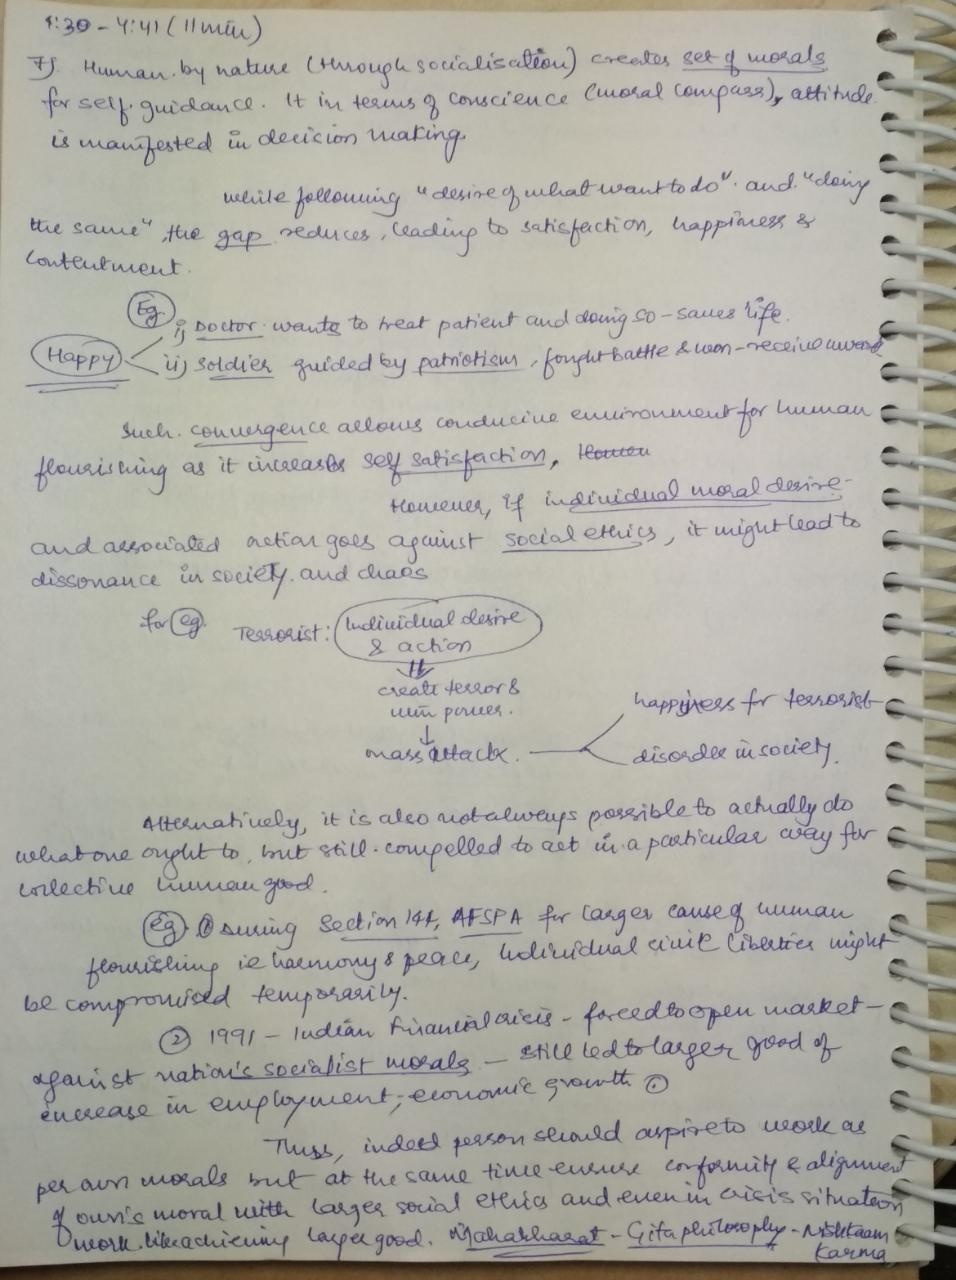 4:30 - 4:41 (11 min)
7). Human by nature (through socialisation) creates set of morals
for self guidance. It in terms of conscience (moral compass), attitude
is manifested in decision making.
while following "desire of what want to do" and "doing
the same", the gap reduces, leading to satisfaction, happiness &
contentment.
Eg
i) Doctor wants to treat patient and doing so - saves life.
Happy
ii) soldier guided by patriotism, fought battle & won - receive award
Such convergence allows conducive environment for human
flourishing as it increases self satisfaction,
However, if individual moral desire
and associated action goes against social ethics, it might lead to
dissonance in society and chaos
for eg. Terrorist: Individual desire
& action
create terror &
win power.
mass attack.
happiness for terrorist
disorder in society.
Alternatively, it is also not always possible to actually do
what one ought to, but still compelled to act in a particular way for
collective human good.
eg ① During Section 144, AFSPA for larger cause of human
flourishing ie harmony & peace, individual civil liberties might
be compromised temporarily.
② 1991 - Indian financial crisis - forced to open market -
against nation's socialist morals - still led to larger good of
increase in employment, economic growth
Thus, indeed person should aspire to work as
per own morals but at the same time ensure conformity & alignment
of own's moral with larger social ethics and even in crisis situation
work like achieving larger good. Mahabharat - Gita philosophy - Nishkaam
Karma